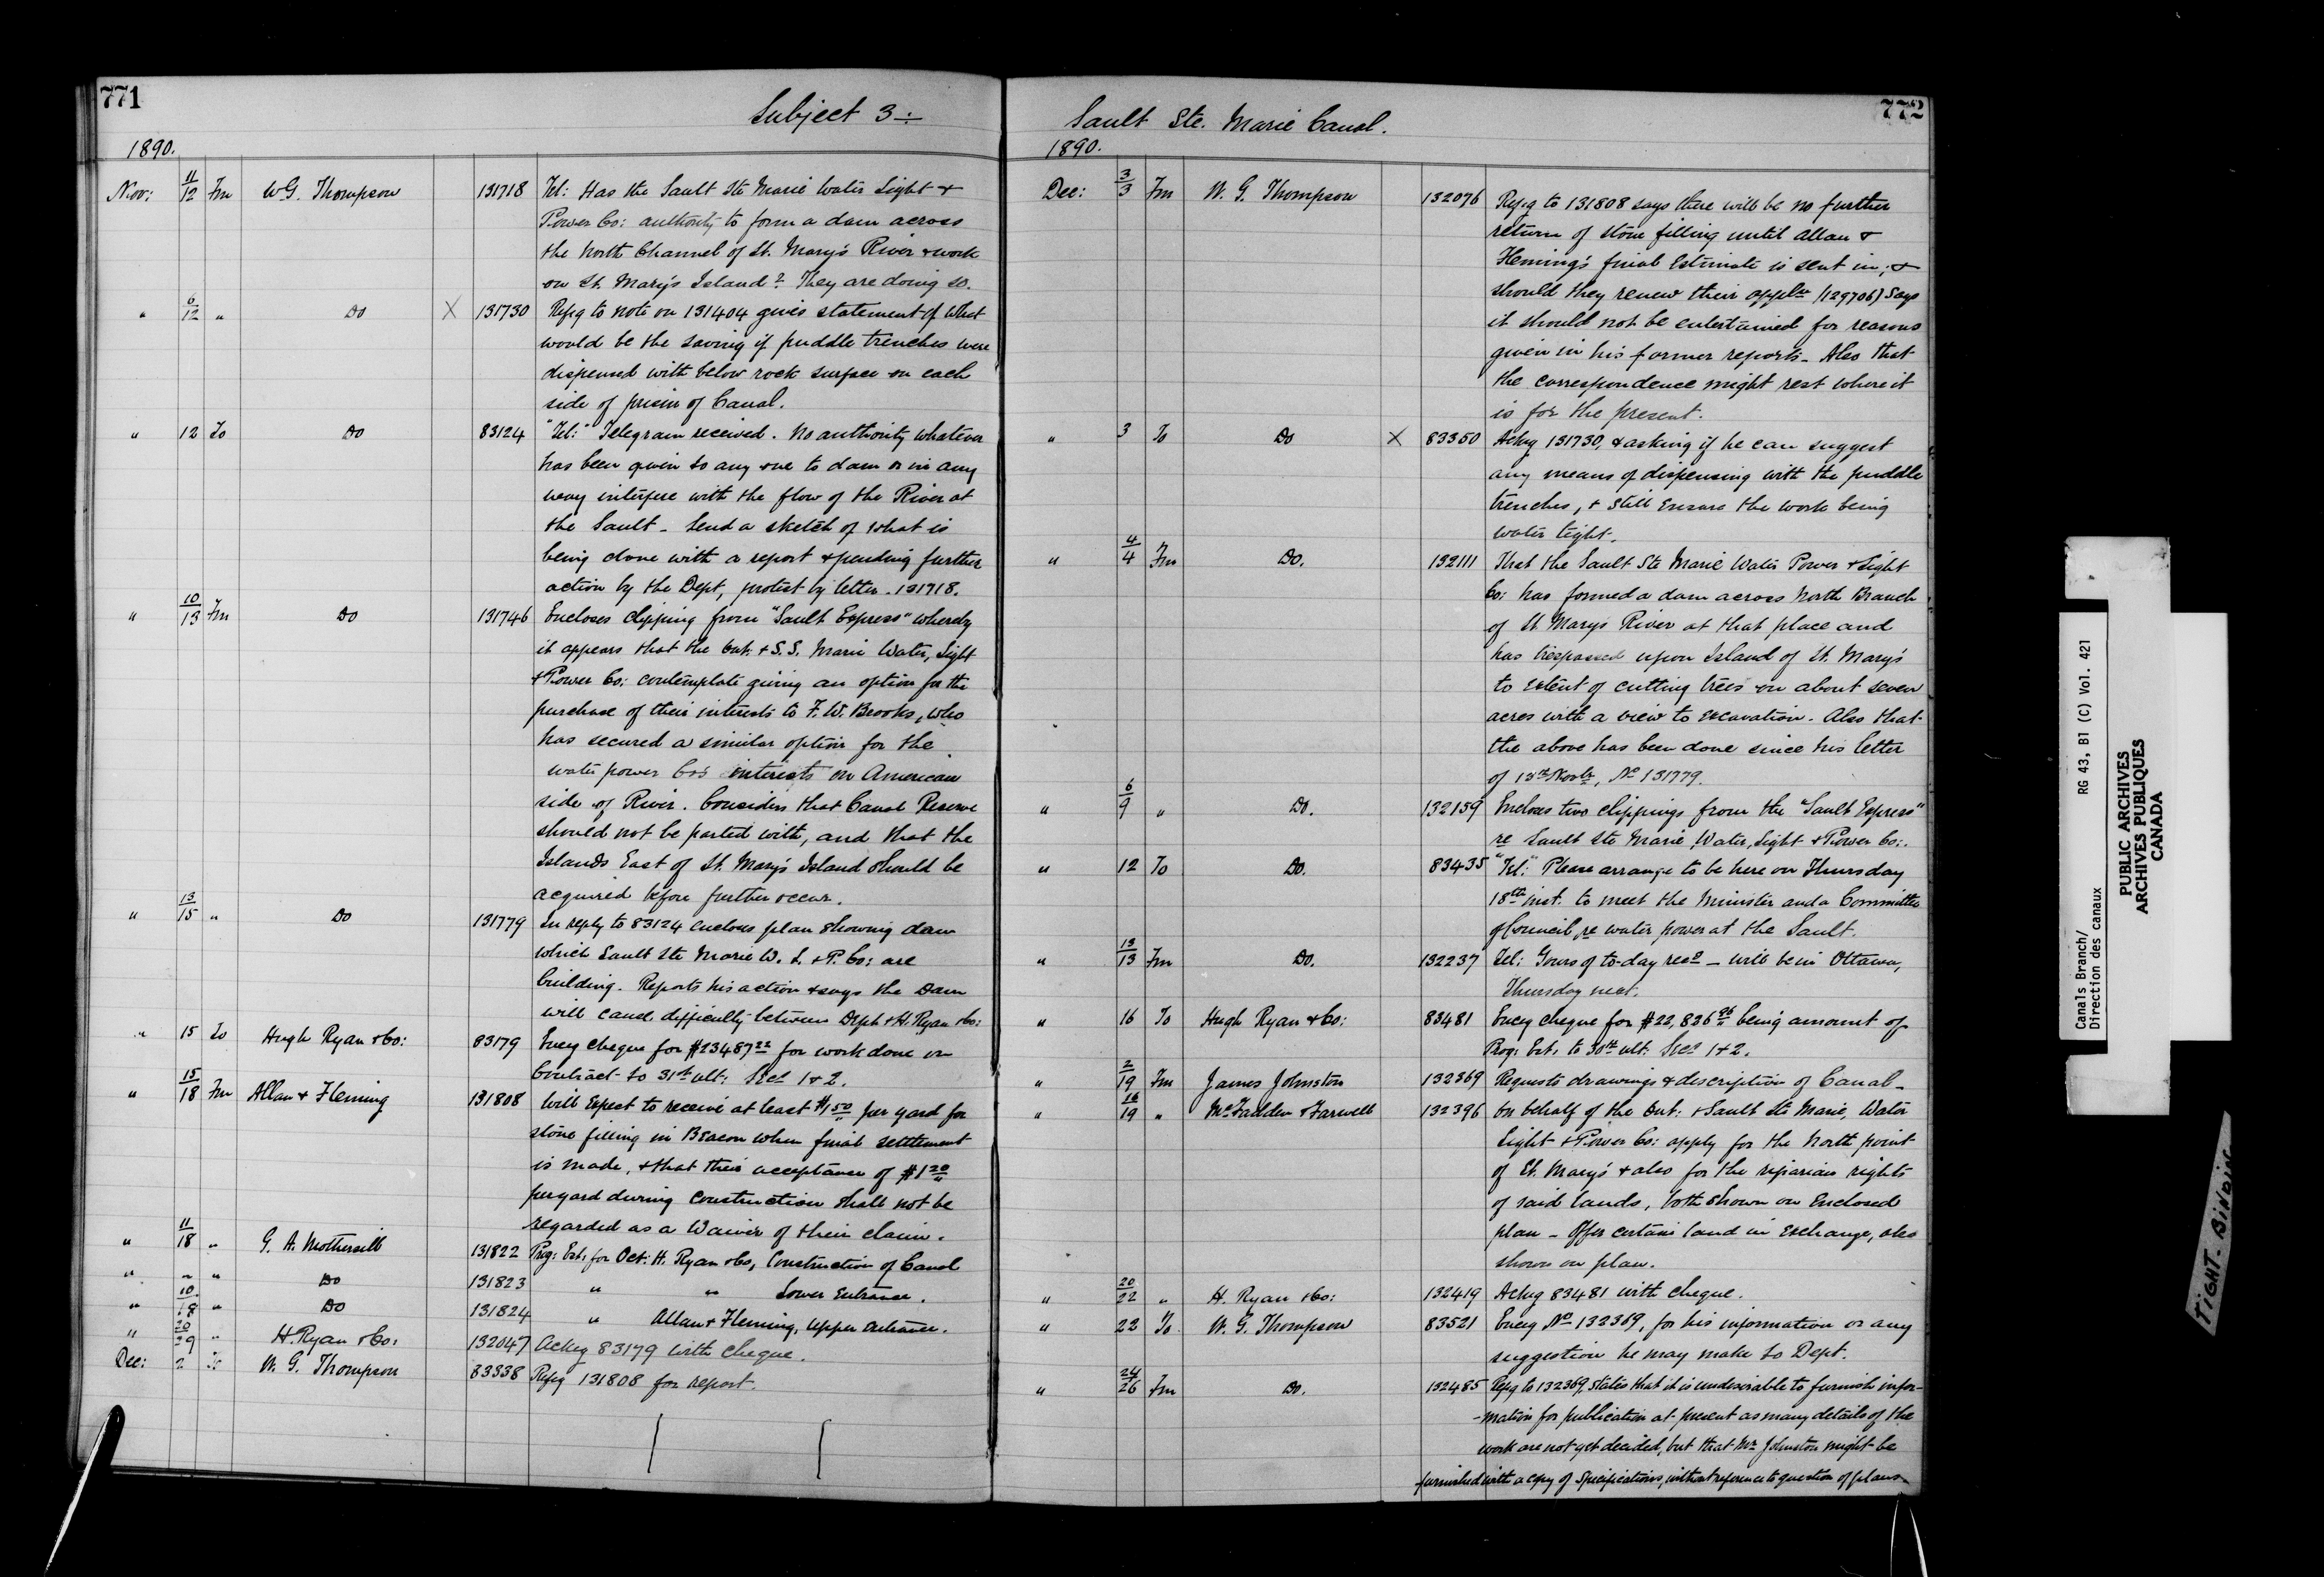 771
Subject 3 :-
1890.
Nov: 11/12 Fm W.G. Thompson 131718 Tel: Has the Sault Ste Marie Water Light &
Power Co: authority to form a dam across
the North Channel of St. Mary's River & work
on St. Mary's Island? They are doing so.
" 6/12 " Do X 131730 Refg to note on 131404 gives statement of what
would be the saving if puddle trenches were
dispensed with below rock surface on each
side of prism of Canal.
" 12 To Do 83124 "Tel:" Telegram received. No authority whatever
has been given to any one to dam or in any
way interfere with the flow of the River at
the Sault - Send a sketch of what is
being done with a report & pending further
action by the Dept, protest by letter. 131718.
" 10/13 Fm Do 131746 Encloses clipping from "Sault Express" whereby
it appears that the Ont. & S.S. Marie Water, Light
& Power Co: contemplate giving an option for the
purchase of their interests to F. W. Brooks, who
has secured a similar option for the
water power Co's interests on American
side of River. Considers that Canal Reserve
should not be parted with, and that the
Islands East of St. Mary's Island should be
acquired before further occur.
" 13/15 " Do 131779 In reply to 83124 encloses plan showing dam
which Sault Ste Marie W. L. & P. Co: are
building. Reports his action & says the Dam
will cause difficulty between Dept & H. Ryan & Co:
" 15 To Hugh Ryan & Co: 83179 Encg cheque for $23487 22 for work done on
Contract to 31st ult: Secs 1 & 2.
" 15/18 Fm Allan & Fleming 131808 Will Expect to receive at least $1 50 per yard for
stone filling in Beacon when final settlement
is made, & that their acceptance of $1 20
per yard during construction shall not be
regarded as a Waiver of their claim.
" 11/18 " G. A. Mothersill 131822 Prog: Est: for Oct: H. Ryan & Co, Construction of Canal
" " " Do 131823 " " Lower Entrance.
" 10/18 " Do 131824 " Allan & Fleming, Upper Entrance.
" 20/29 " H. Ryan & Co: 132047 Ackg 83179 with cheque.
Dec: 2 To W. G. Thompson 83338 Refg 131808 for report.
772
Sault Ste. Marie Canal.
1890.
Dec: 3/3 Fm W. G. Thompson 132076 Refg to 131808 says there will be no further
return of stone filling until Allan &
Fleming's final Estimate is sent in; &
should they renew their appln (129706) says
it should not be entertained for reasons
given in his former reports - Also that
the correspondence might rest where it
is for the present.
" 3 To Do X 83350 Ackg 131730, & asking if he can suggest
any means of dispensing with the puddle
trenches, & still ensure the work being
water tight.
" 4/4 Fm Do. 132111 That the Sault Ste Marie Water Power & Light
Co: has formed a dam across North Branch
of St Mary's River at that place and
has trespassed upon Island of St. Mary's
to extent of cutting trees on about seven
acres with a view to excavation. Also that
the above has been done since his letter
of 13th Novbr, No 131779.
" 6/9 " Do. 132159 Encloses two clippings from the "Sault Express"
re Sault Ste Marie, Water, Light & Power Co:.
" 12 To Do. 83435 "Tel:" Please arrange to be here on Thursday
18th inst. to meet the Minister and a Committee
of Council re water power at the Sault.
" 13/13 Fm Do. 132237 Tel: Yours of to-day recd - will be in Ottawa,
Thursday next.
" 16 To Hugh Ryan & Co: 83481 Encg cheque for $22,836 26 being amount of
Prog: Est: to 30th ult: Secs 1 & 2.
" 2/19 Fm James Johnston 132369 Requests drawings & description of Canal -
" 16/19 " McFadden & Farwell 132396 On behalf of the Ont: & Sault Ste Marie, Water
Light & Power Co: apply for the North point
of St. Mary's & also for the riparian rights
of said lands, both shown on Enclosed
plan - Offer certain land in Exchange, also
shown on plan.
" 20/22 " H. Ryan & Co: 132419 Ackg 83481 with cheque.
" 22 To W. G. Thompson 83521 Encg No 132369, for his information or any
suggestion he may make to Dept.
" 24/26 Fm Do. 132485 Refg to 132369, states that it is undesirable to furnish infor-
-mation for publication at present as many details of the
work are not yet decided, but that Mr Johnston might be
furnished with a copy of specifications, without reference to question of plans
Canals Branch/
Direction des canaux
RG 43, B1 (C) Vol. 421
PUBLIC ARCHIVES
ARCHIVES PUBLIQUES
CANADA
TIGHT BINDING